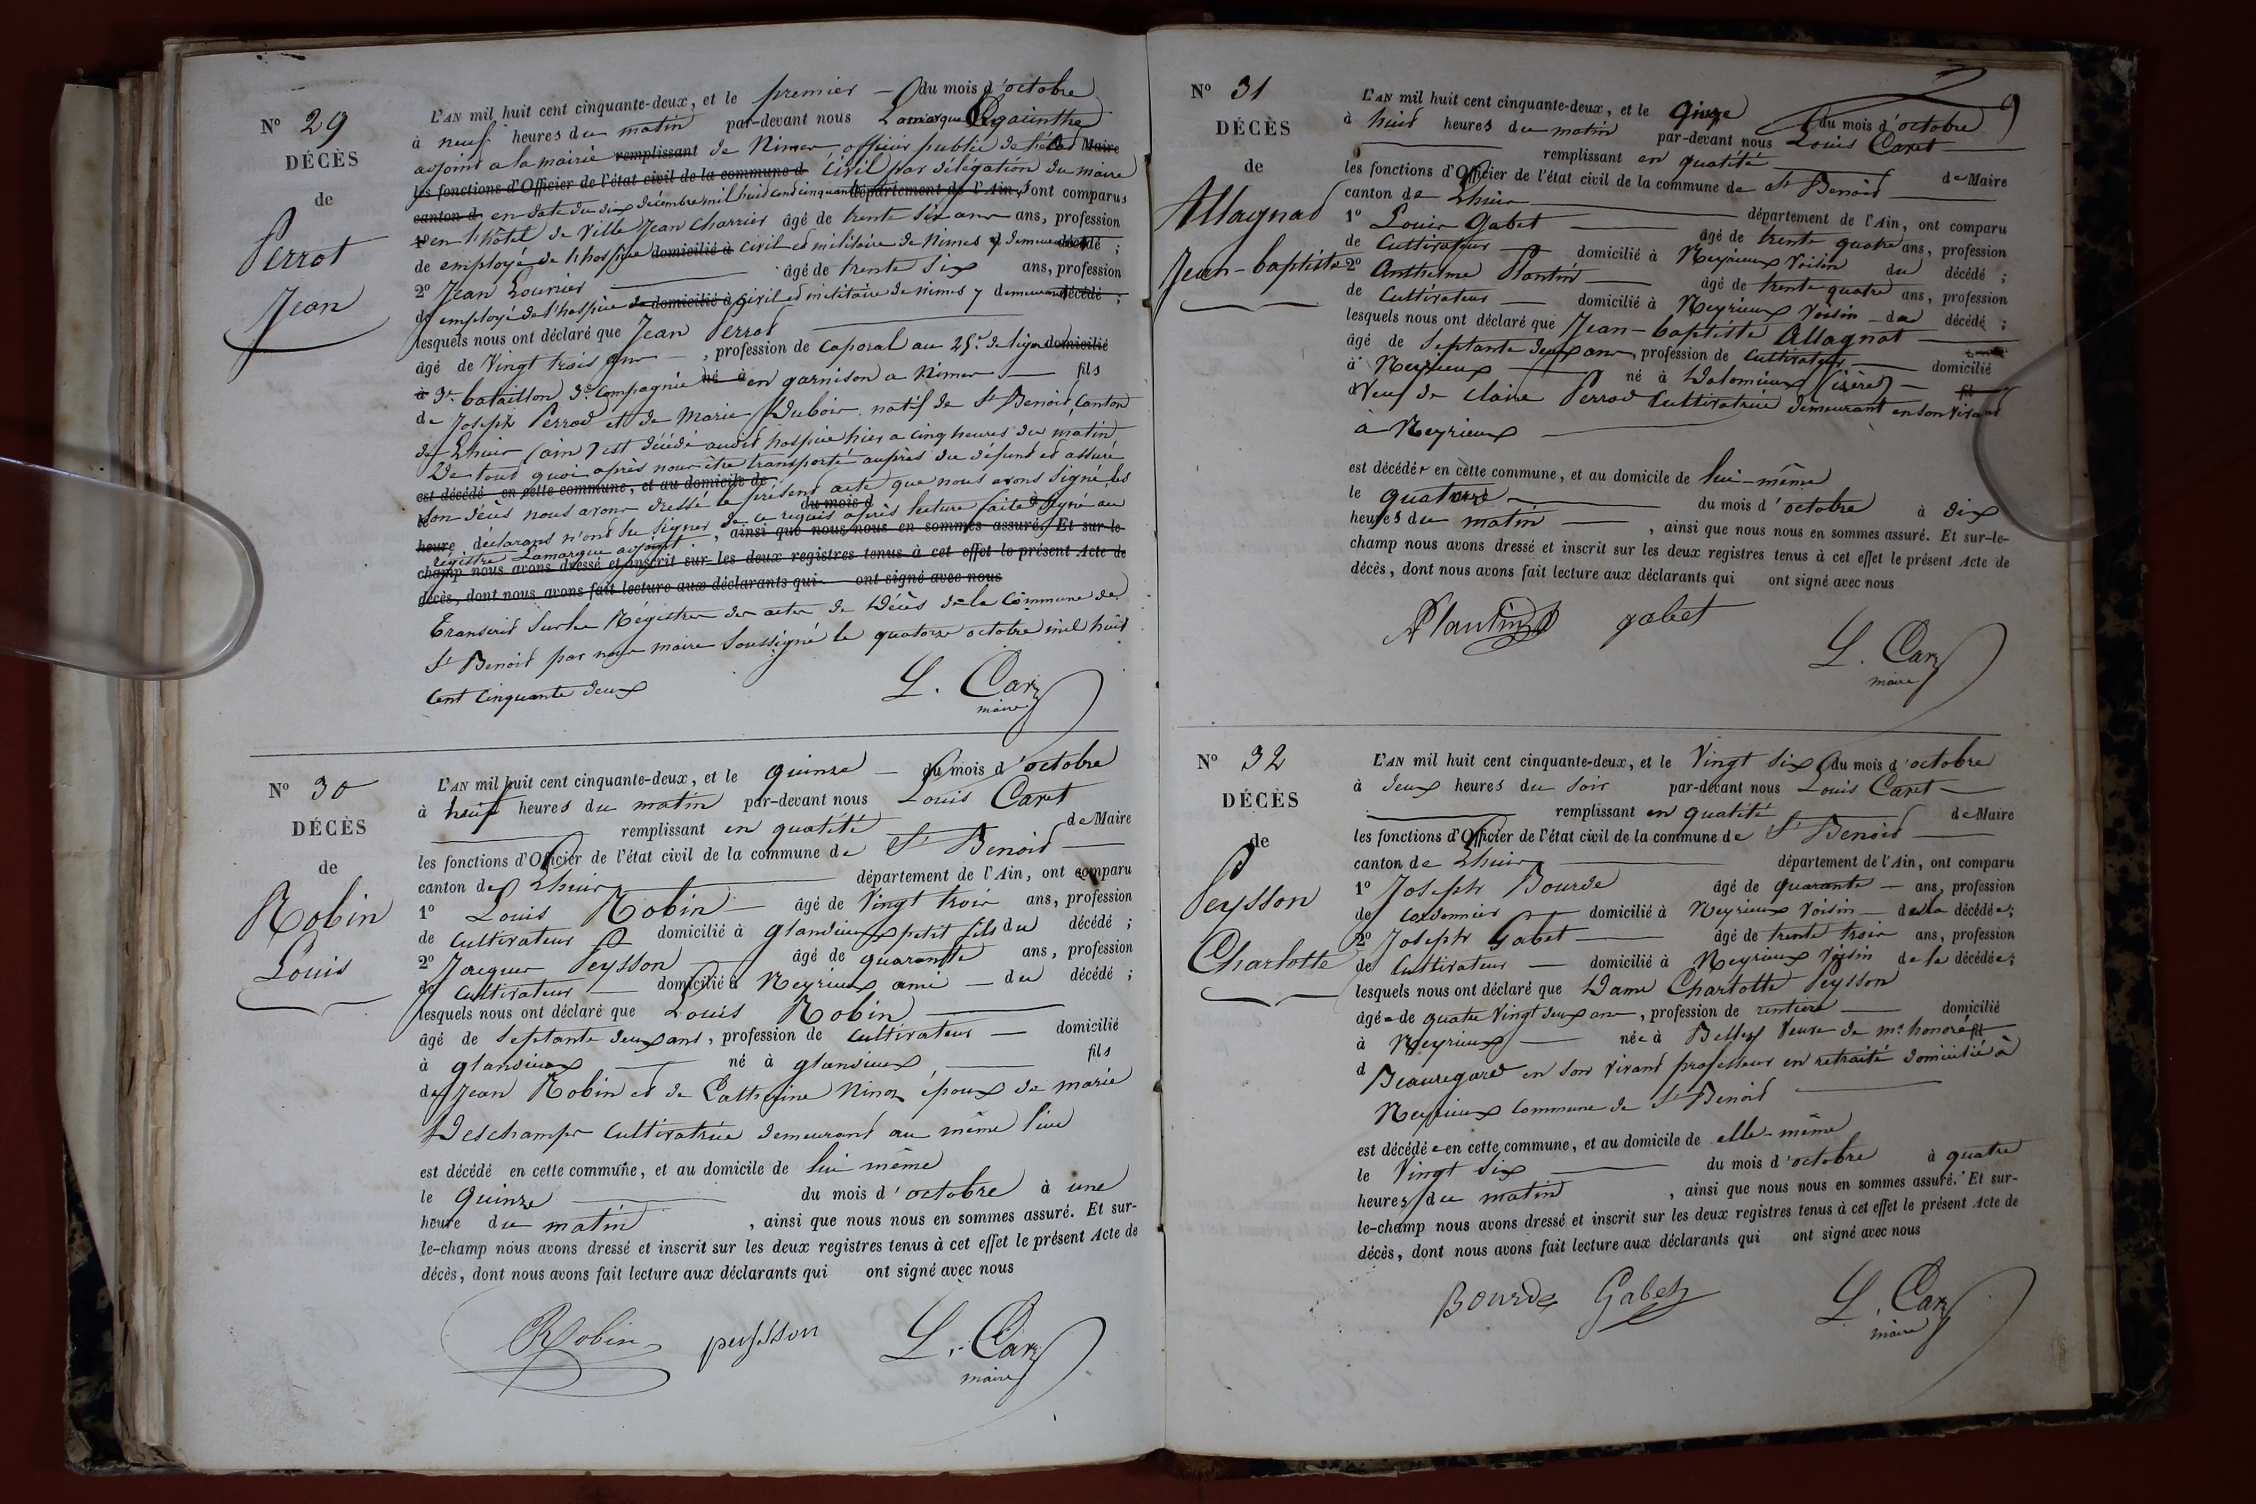 Nº 29
DÉCÈS
de
Perrot
Jean
L'AN mil huit cent cinquante-deux, et le premier — du mois d'octobre
à neuf heures du matin par-devant nous Lamarque hyacinthe
adjoint a la mairie remplissant de Nimes officier public de l'état Maire
les fonctions d'Officier de l'état civil de la commune d civil par délégation du maire
canton d en date du dix décembre mil huit cent cinquante département de l'Ain, sont comparus
1º en l'hôtel de Ville Jean Charrier âgé de trente six ans ans, profession
de employé de l'hospice domicilié à civil et militaire de nimes y demeurant décédé ;
2º Jean Lourier — âgé de trente six ans, profession
de employé de l'hospice domicilié à civil et militaire de nimes y demeurant décédé ;
lesquels nous ont déclaré que Jean Perrod —
âgé de Vingt trois ans — , profession de caporal au 25e de ligne domicilié
à 3e bataillon 3e Compagnie né à en garnison a Nimes — fils
de Joseph Perrod et de Marie Dubois natif de St Benoit, Canton
de Lhuis (ain) est décédé audit hospice hier a cinq heures du matin
De tout quoi après nous être transporté auprès du défunt et assuré
est décédé en cette commune, et au domicile de
son décès nous avons dressé le présent acte que nous avons signé les
le du mois d à
heure déclarans n'ont su signer de ce requis après lecture faite Signé au
, ainsi que nous nous en sommes assuré. Et sur-le-
régistre Lamarque adjoint
champ nous avons dressé et inscrit sur les deux registres tenus à cet effet le présent Acte de
décès, dont nous avons fait lecture aux déclarants qui ont signé avec nous
Transcrit sur les Régistres des actes de Décès de la Commune de
St Benoit par nous maire soussigné le quatorze octobre mil huit
cent cinquante deux
L. Caret
maire
Nº 30
DÉCÈS
de
Robin
Louis
L'AN mil huit cent cinquante-deux, et le quinze — du mois d'octobre
à heuf heures du matin par-devant nous Louis Caret
— remplissant en qualité de Maire
les fonctions d'Officier de l'état civil de la commune de St Benoit —
canton de Lhuis — département de l'Ain, ont comparu
1º Louis Robin — âgé de Vingt trois ans, profession
de cultivateur domicilié à glandieux petit fils du décédé ;
2º Jacques Peysson — âgé de quarante ans, profession
de cultivateur — domicilié à Neyrieux ami — du décédé ;
lesquels nous ont déclaré que Louis Robin —
âgé de septante deux ans, profession de cultivateur — domicilié
à glandieux — né à glandieux — fils
de Jean Robin et de Catherine Ninoz époux de marie
Deschamps cultivatrice demeurant au même lieu
est décédé en cette commune, et au domicile de lui même
le quinze — du mois d'octobre à une
heure du matin , ainsi que nous nous en sommes assuré. Et sur-
le-champ nous avons dressé et inscrit sur les deux registres tenus à cet effet le présent Acte de
décès, dont nous avons fait lecture aux déclarants qui ont signé avec nous
Robin peysson L. Caret
maire
9
Nº 31
DÉCÈS
de
Allagnat
Jean-baptiste
L'AN mil huit cent cinquante-deux, et le Qinze du mois d'octobre
à huit heures du matin par-devant nous Louis Caret —
— remplissant en qualité — de Maire
les fonctions d'Officier de l'état civil de la commune de St Benoit —
canton de Lhuis — département de l'Ain, ont comparu
1º Louis Gabet — âgé de trente quatre ans, profession
de Cultivateur — domicilié à Neyrieux voisin du décédé ;
2º Anthelme Plantin — âgé de trente quatre ans, profession
de Cultivateur — domicilié à Neyrieux voisin — du décédé ;
lesquels nous ont déclaré que Jean-baptiste Allagnat —
âgé de septante deux ans, profession de cultivateur — domicilié
à Neyrieux — né à Dolomieux (isère) — fil
d Veuf de claire Perrod cultivatrice demeurant en son vivant
à Neyrieux —
est décédé en cette commune, et au domicile de lui-même
le quatorze — du mois d'octobre à dix
heures du matin — , ainsi que nous nous en sommes assuré. Et sur-le-
champ nous avons dressé et inscrit sur les deux registres tenus à cet effet le présent Acte de
décès, dont nous avons fait lecture aux déclarants qui ont signé avec nous
Plantin gabet
L. Caret
maire
Nº 32
DÉCÈS
de
Peysson
Charlotte
L'AN mil huit cent cinquante-deux, et le Vingt six du mois d'octobre
à deux heures du soir par-devant nous Louis Caret —
— remplissant en qualité de Maire
les fonctions d'Officier de l'état civil de la commune de St Benoit —
canton de Lhuis — département de l'Ain, ont comparu
1º Joseph Bourde âgé de quarante — ans, profession
de cordonnier — domicilié à Neyrieux voisin — de la décédée ;
2º Joseph Gabet — âgé de trente trois ans, profession
de Cultivateur — domicilié à Neyrieux voisin de la décédée ;
lesquels nous ont déclaré que Dame Charlotte Peysson
âgée de quatre Vingt deux ans, profession de rentière — domicilié
à Neyrieux — née à Belley Veuve de mr honoré fil
d Beauregard en son vivant professeur en retraité domicilié à
Neyrieux commune de St Benoit —
est décédée en cette commune, et au domicile de elle-même
le Vingt six — du mois d'octobre à quatre
heures du matin , ainsi que nous nous en sommes assuré. Et sur-
le-champ nous avons dressé et inscrit sur les deux registres tenus à cet effet le présent Acte de
décès, dont nous avons fait lecture aux déclarants qui ont signé avec nous
Bourde Gabet L. Caret
maire